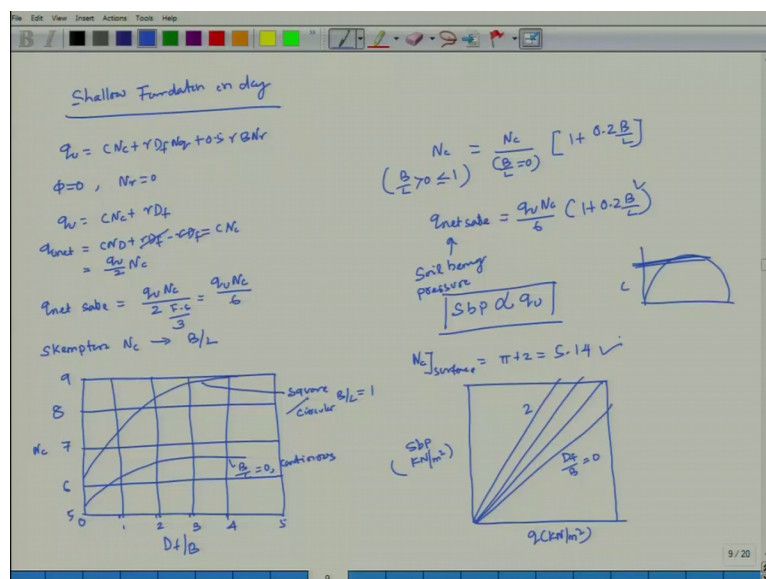 File Edit View Insert Actions Tools Help
B I
Shallow Foundation in clay
qu = CNc + γDf Nq + 0.5 γ B Nγ
Φ=0 , Nγ=0
qu = CNc + γDf
qunet = CND + γDf - γDf = CNc
= qu/2 Nc
qnet sabe = qu Nc / 2 F.S/3 = qu Nc / 6
Skemptons Nc → B/L
9
8
Nc 7
6
5
0 1 2 3 4 5
Df/B
square B/L = 1
circular
B/L = 0, continous
Nc = Nc [1 + 0.2 B/L]
(B/L >0 ≤ 1) (B/L =0)
qnet sabe = qu Nc / 6 (1+0.2 B/L)
↑
Soil bering
pressure
Sbp ∝ qu
C
Nc]surface = π+2 = 5.14 ✓
2
Sbp
(KN/m²)
Df/B = 0
q(KN/m²)
9 / 20